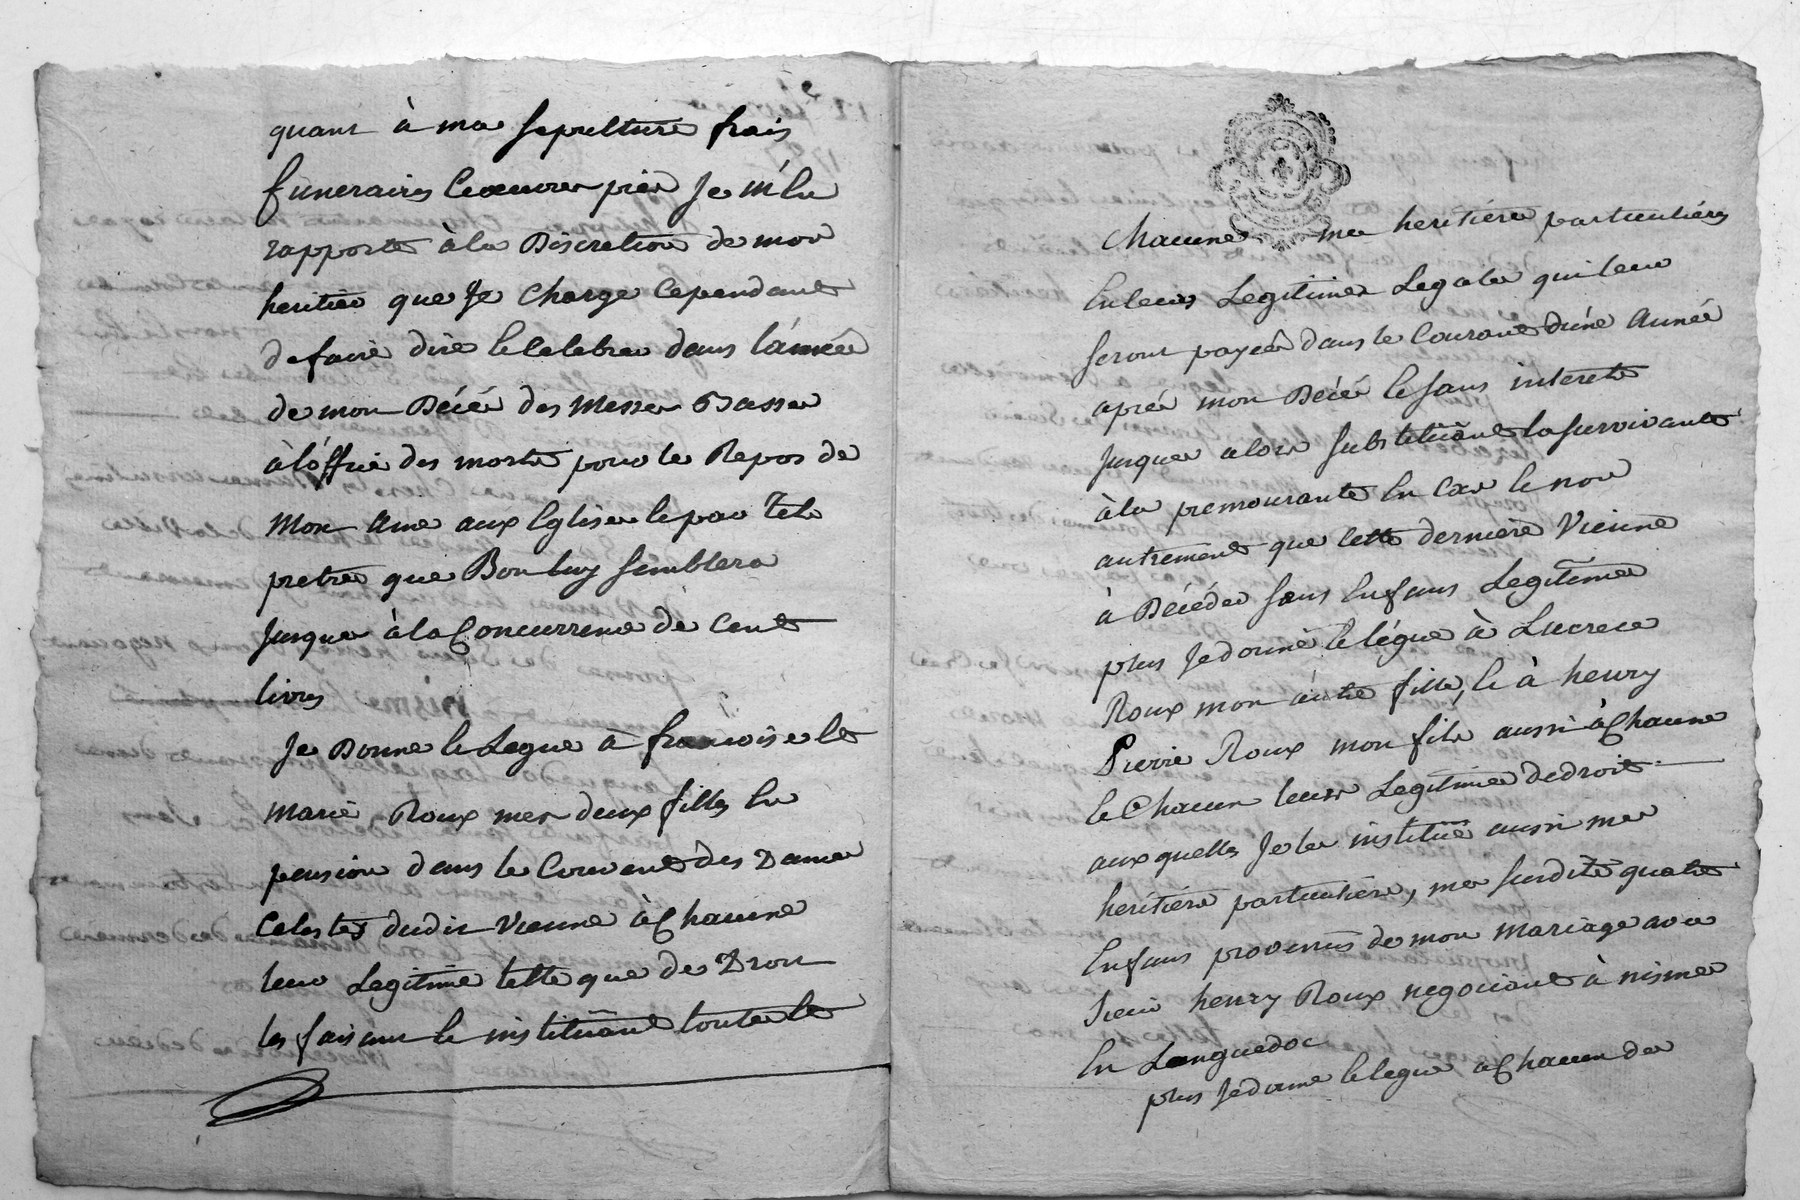 quant à ma sepulture frais
funeraires & œuvres pies Je m'en
rapporte à la Discretion de mon
heritier que Je Charge Cependant
de faire dire & Celebrer dans l'année
de mon Décéz des Messes Basses
à l'office des morts pour le Repos de
Mon Ame aux Eglises & par tels
pretres que Bon luy semblera
Jusques à la Concurrence de Cent
livres
Je Donne & Legue à francoise &
marie Roux mes deux filles en
pension dans le Couvent des Dames
Celestes dudit Vienne à Chacune
leur Legitime telle que de Droit
les faisant & instituant toutes &
Chacune mes heritieres particulieres
En leurs Legitimes Legales qui leur
seront payées dans le Courant d'une Année
après mon Décéz & sans interets
Jusques alors substituant la survivante
à la premourante En Cas & non
autrement que cette derniere Vienne
à Décéder sans Enfans Legitimes
plus Je donne & légue à Lucrece
Roux mon autre fille, & à henry
Pierre Roux mon fils aussi à Chacune
& Chacun leurs Legitimes de droit
aux quelles Je les institue aussi mes
heritiers particuliers, mes susdits quatre
Enfans provenus de mon Mariage avec
Sieur henry Roux negociant à nismes
En Languedoc
plus Je donne & legue à Chacun des